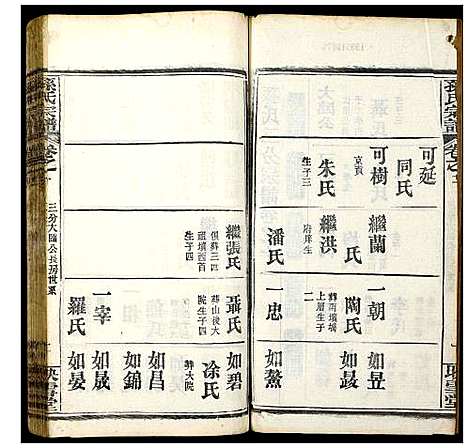 孫氏宗譜
卷之
可延
同氏
可樹
京貢
朱氏
生子三
繼蘭
氏
繼洪
府庠生
潘氏
一朝
陶氏
葬雨壇塆
上層生子
一忠
如昱
如晸
如鰲
映雪堂
繼張氏
俱葬三四
生子四
聶氏
葬山後大
院生子四
一宰
羅氏
如碧
涂氏
葬大院
如昌
如錦
如晟
如晏
孫氏宗譜
卷之
三分大國公長房世系
映雪堂